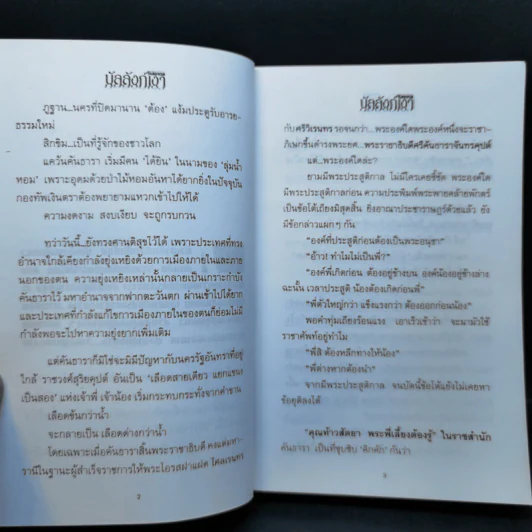 บัลลังก์เงา
ภูฐาน...นครที่ปิดมานาน 'ต้อง' แง้มประตูรับอารย-
ธรรมใหม่
สิกขิม...เป็นที่รู้จักของชาวโลก
แคว้นคันธารา เริ่มมีคน 'ได้ยิน' ในนามของ 'ลุ่มน้ำ
หอม' เพราะอุดมด้วยป่าไม้หอมอันหาได้ยากยิ่งในปัจจุบัน
กองทัพเงินตราต้องพยายามแหวกเข้าไปให้ได้
ความงดงาม สงบเงียบ จะถูกรบกวน
ทว่าวันนี้...ยังทรงศานติสุขไว้ได้ เพราะประเทศที่ทรง
อำนาจใกล้เคียงกำลังยุ่งเหยิงด้วยการเมืองภายในและภาย
นอกของตน ความยุ่งเหยิงเหล่านั้นกลายเป็นเกราะกำบัง
คันธาราไว้ มหาอำนาจจากฟากตะวันตก ผ่านเข้าไปได้ยาก
และประเทศที่กำลังแก้ไขการเมืองภายในของตนก็ย่อมไม่มี
กำลังพอจะไปหาความยุ่งยากเพิ่มเติม
แต่คันธาราก็มิใช่จะมิมีปัญหากับนครรัฐอันทราที่อยู่
ใกล้ ราชวงศ์สุริยคุปต์ อันเป็น 'เลือดสายเดียว แยกแขนง
เป็นสอง' แห่งเจ้าพี่ เจ้าน้อง เริ่มกระทบกระทั่งจากตำนาน
เลือดข้นกว่าน้ำ
จะกลายเป็น เลือดต่างกว่าน้ำ
โดยเฉพาะเมื่อคันธาราสิ้นพระราชาธิบดี คงแต่มหา-
ราณีในฐานะผู้สำเร็จราชการให้พระโอรสฝาแฝด ไคลเรนทร
2
บัลลังก์เงา
กับศรีวิเรนทร รอจนกว่า...พระองค์ใดพระองค์หนึ่งจะราชา-
ภิเษกขึ้นดำรงพระยศ...พระราชาธิบดีศรีคันธาราจันทรคุปต์
แต่...พระองค์ใดล่ะ?
ยามมีพระประสูติกาล ไม่มีใครเคยชี้ชัด พระองค์ใด
มีพระประสูติกาลก่อน ความประพิมพ์ประพายคล้ายพักตร์
เป็นข้อโต้เถียงมิสุดสิ้น ยิ่งอาณาประชาราษฎร์ด้วยแล้ว ยัง
มีข้อกล่าวแผก ๆ กัน
"องค์ที่ประสูติก่อนต้องเป็นพระอนุชา"
"อ้าว! ทำไมไม่เป็นพี่?"
"องค์พี่เกิดก่อน ต้องอยู่ข้างบน องค์น้องอยู่ข้างล่าง
ฉะนั้น เวลาประสูติ น้องต้องเกิดก่อนพี่"
"พี่ตัวใหญ่กว่า แข็งแรงกว่า ต้องออกก่อนน้อง"
พอคำทุ่มเถียงร้อนแรง เอาเร็วเข้าว่า จะมามัวใช้
ราชาศัพท์อยู่ทำไม
"พี่สิ ต้องหลีกทางให้น้อง"
"พี่ต่างหากต้องนำ"
จากมีพระประสูติกาล จนบัดนี้ข้อโต้แย้งไม่เคยหา
ข้อยุติลงได้
"คุณท้าวสัตยา พระพี่เลี้ยงต้องรู้" ในราชสำนัก
คันธารา เป็นที่ซุบซิบ 'คึกคัก' กันว่า
3